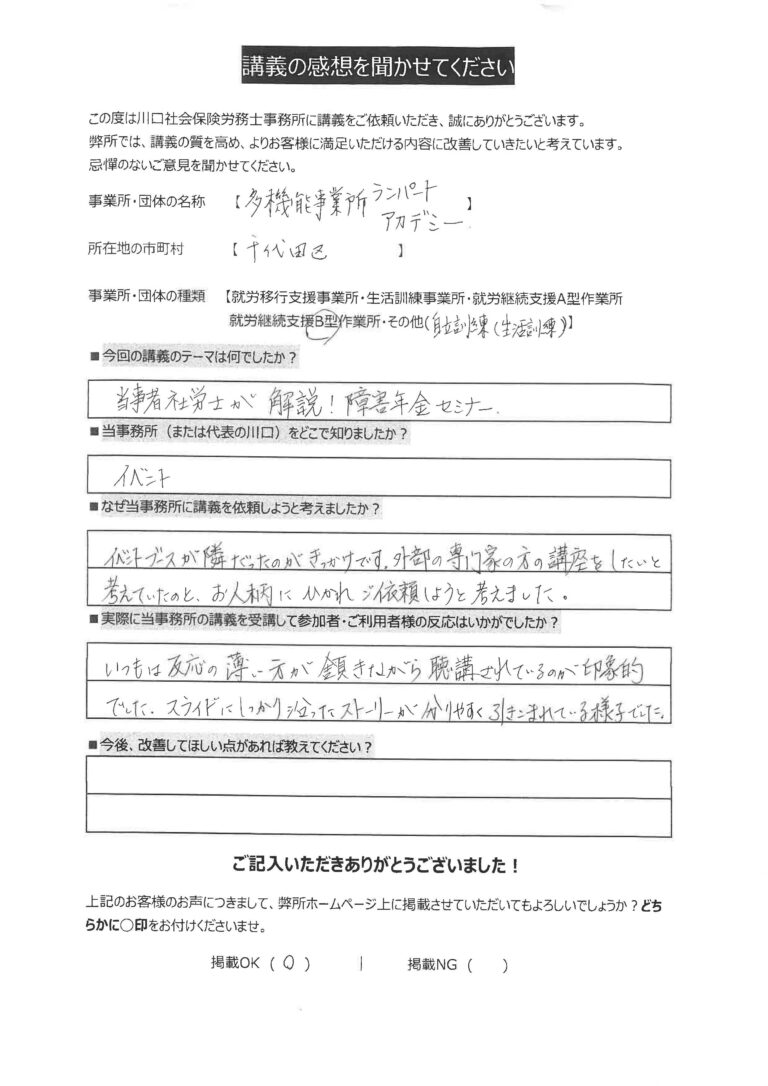 講義の感想を聞かせてください
この度は川口社会保険労務士事務所に講義をご依頼いただき、誠にありがとうございます。
弊所では、講義の質を高め、よりお客様に満足いただける内容に改善していきたいと考えています。
忌憚のないご意見を聞かせてください。
事業所・団体の名称 【多機能事業所 ランパート
アカデミー 】
所在地の市町村 【 千代田区 】
事業所・団体の種類 【就労移行支援事業所・生活訓練事業所・就労継続支援A型作業所
就労継続支援B型作業所・その他(自立訓練(生活訓練))】
■今回の講義のテーマは何でしたか?
当事者社労士が 解説!障害年金セミナー.
■当事務所(または代表の川口)をどこで知りましたか?
イベント
■なぜ当事務所に講義を依頼しようと考えましたか?
イベントブースが隣だったのがきっかけです。外部の専門家の方の講座をしたいと
考えていたのと、お人柄にひかれ ご依頼しようと考えました。
■実際に当事務所の講義を受講して参加者・ご利用者様の反応はいかがでしたか?
いつもは反応の薄い方が 頷きながら 聴講されているのが印象的
でした. スライドにしっかり沿ったストーリーが分りやすく引きこまれている様子でした.
■今後、改善してほしい点があれば教えてください?
ご記入いただきありがとうございました!
上記のお客様のお声につきまして、弊所ホームページ上に掲載させていただいてもよろしいでしょうか?どち
らかに○印をお付けくださいませ。
掲載OK ( ○ ) | 掲載NG ( )